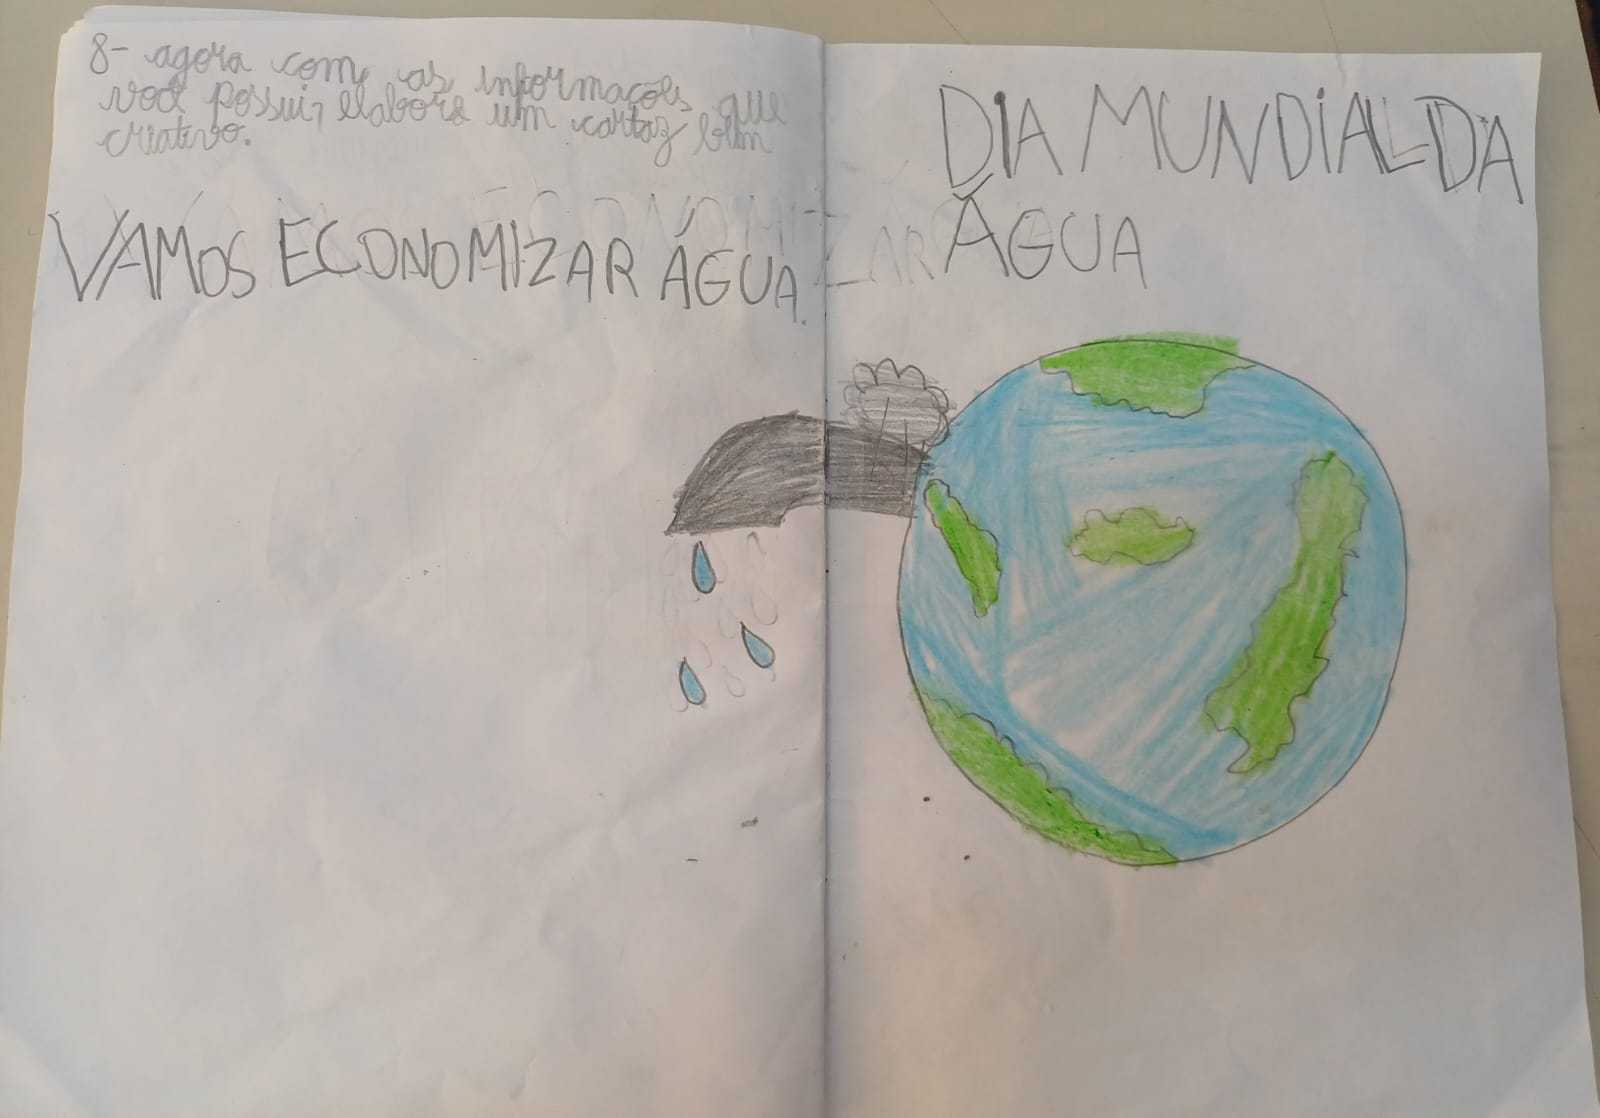 8- agora com as informações que
você possui, elabore um cartaz bem
criativo.
VAMOS ECONOMIZAR ÁGUA.
DIA MUNDIAL DA
ÁGUA